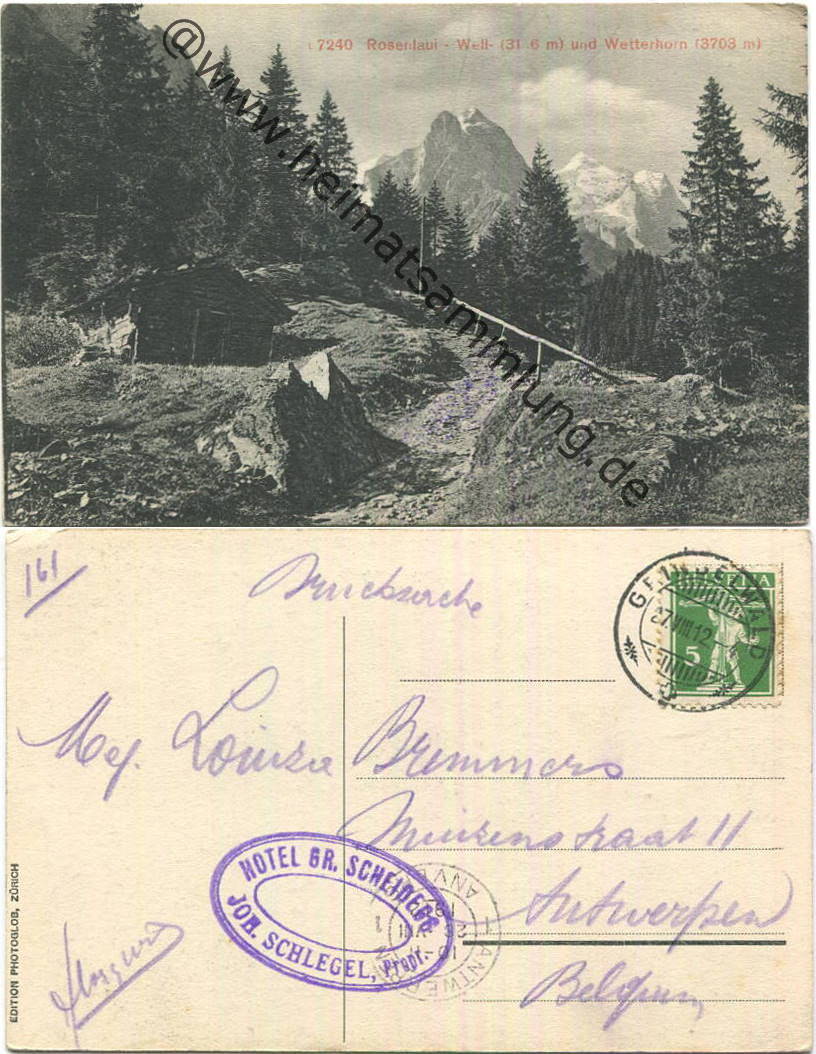 7240 Rosenlaui - Well- (31 6 m) und Wetterhorn (3703 m)
@www.heimatsammlung.de
161
Drucksache
HELVETIA
5
GRINDELWALD
27.VIII.12
Mej. Louiza Bremmers
Muizenstraat 11
Antwerpen
Belgium
HOTEL GR. SCHEIDEGG
JOH. SCHLEGEL, Propr.
ANTWERPEN
ANVERS
EDITION PHOTOGLOB, ZÜRICH